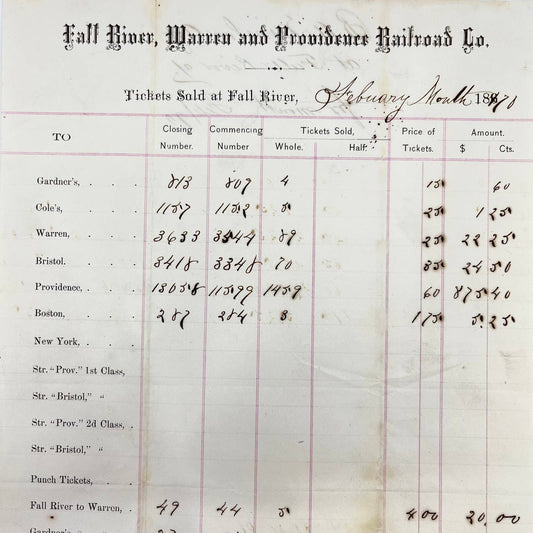 Fall River, Warren and Providence Railroad Co.
Tickets Sold at Fall River, Febuary Month 1870
TO Closing Number. Commencing Number Tickets Sold, Whole. Half. Price of Tickets. Amount. $ Cts.
Gardner's, . . . 813 809 4 15 60
Cole's, . . . 1157 1152 5 25 1 25
Warren, . . . 3633 3544 89 25 22 25
Bristol. . . . 3418 3348 70 35 24 50
Providence, . . . 13058 11599 1459 60 875 40
Boston, . . . 287 284 3 175 5 25
New York, . . .
Str. "Prov." 1st Class,
Str. "Bristol," "
Str. "Prov." 2d Class, .
Str. "Bristol," "
Punch Tickets, . .
Fall River to Warren, . 49 44 5 4 00 20.00
Gardner's